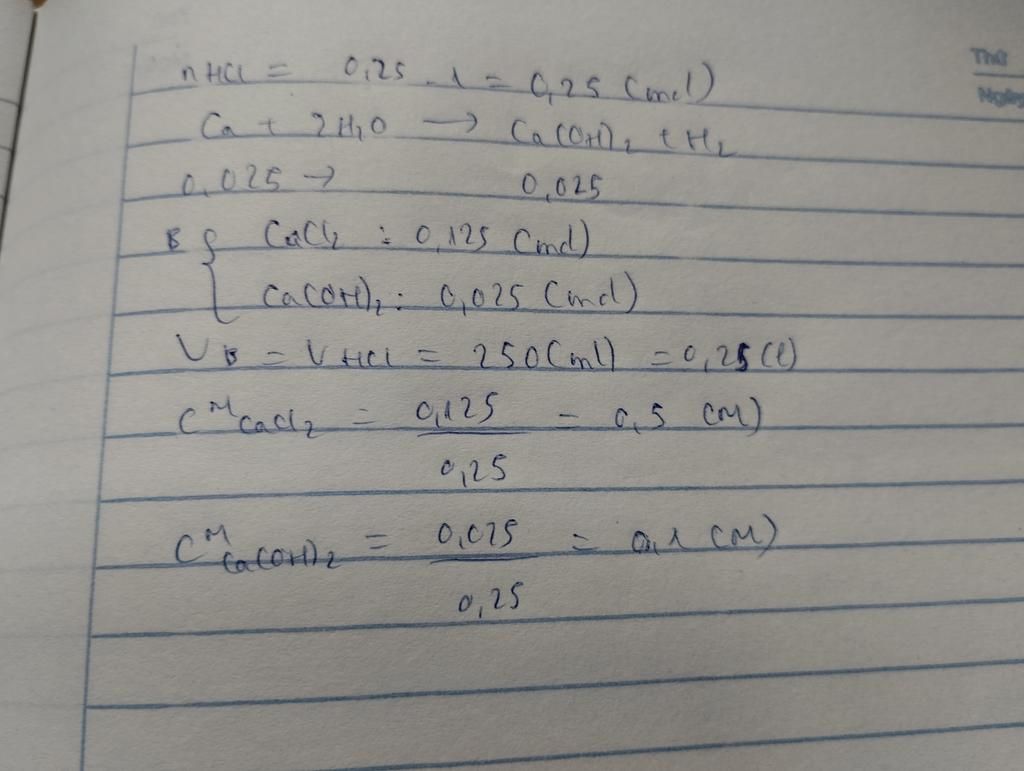 Thứ
Ngày
nHCl = 0,25 . 1 = 0,25 (mol)
Ca + 2H₂O → Ca(OH)₂ + H₂
0,025 → 0,025
B { CaCl₂ : 0,125 (mol)
Ca(OH)₂ : 0,025 (mol)
VB = VHCl = 250 (ml) = 0,25 (l)
CM CaCl₂ = 0,125 / 0,25 = 0,5 (M)
CM Ca(OH)₂ = 0,025 / 0,25 = 0,1 (M)